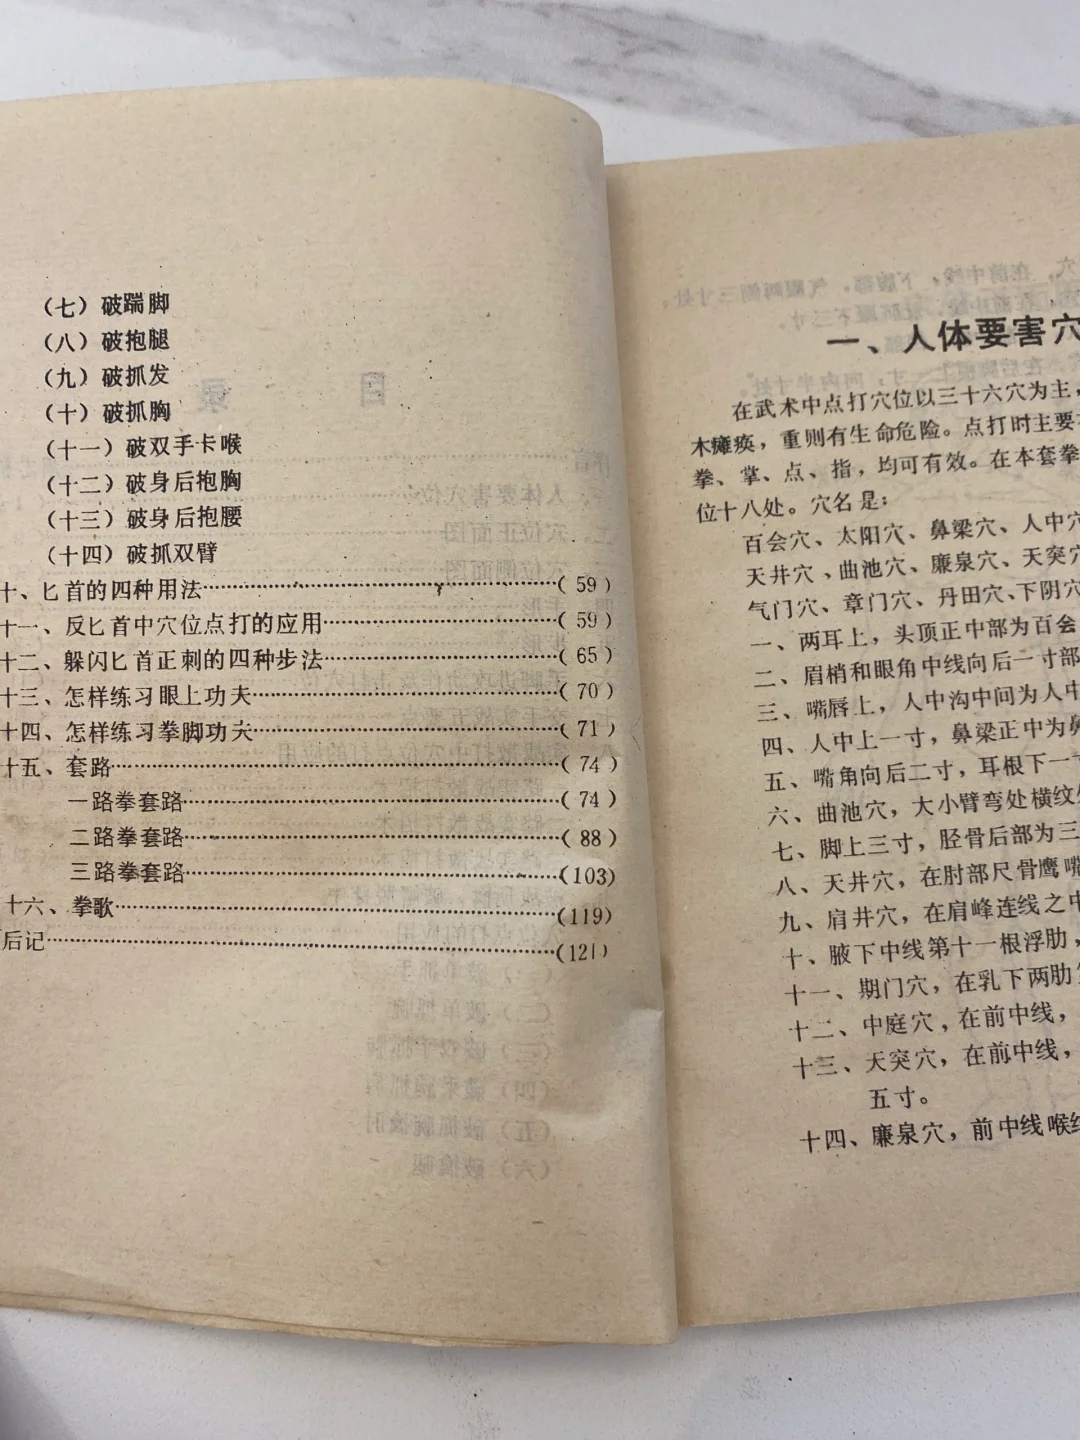 （七）破踹脚
（八）破抱腿
（九）破抓发
（十）破抓胸
（十一）破双手卡喉
（十二）破身后抱胸
（十三）破身后抱腰
（十四）破抓双臂
十、匕首的四种用法……（59）
十一、反匕首中穴位点打的应用……（59）
十二、躲闪匕首正刺的四种步法……（65）
十三、怎样练习眼上功夫……（70）
十四、怎样练习拳脚功夫……（71）
十五、套路……（74）
一路拳套路……（74）
二路拳套路……（88）
三路拳套路……（103）
十六、拳歌……（119）
后记……（121）
一、人体要害穴
在武术中点打穴位以三十六穴为主，
木瘫痪，重则有生命危险。点打时主要
拳、掌、点、指，均可有效。在本套拳
位十八处。穴名是：
百会穴、太阳穴、鼻梁穴、人中穴
天井穴、曲池穴、廉泉穴、天突穴
气门穴、章门穴、丹田穴、下阴穴
一、两耳上，头顶正中部为百会
二、眉梢和眼角中线向后一寸部
三、嘴唇上，人中沟中间为人中
四、人中上一寸，鼻梁正中为鼻
五、嘴角向后二寸，耳根下一寸
六、曲池穴，大小臂弯处横纹
七、脚上三寸，胫骨后部为三
八、天井穴，在肘部尺骨鹰嘴
九、肩井穴，在肩峰连线之中
十、腋下中线第十一根浮肋，
十一、期门穴，在乳下两肋
十二、中庭穴，在前中线，
十三、天突穴，在前中线，
五寸。
十四、廉泉穴，前中线喉结